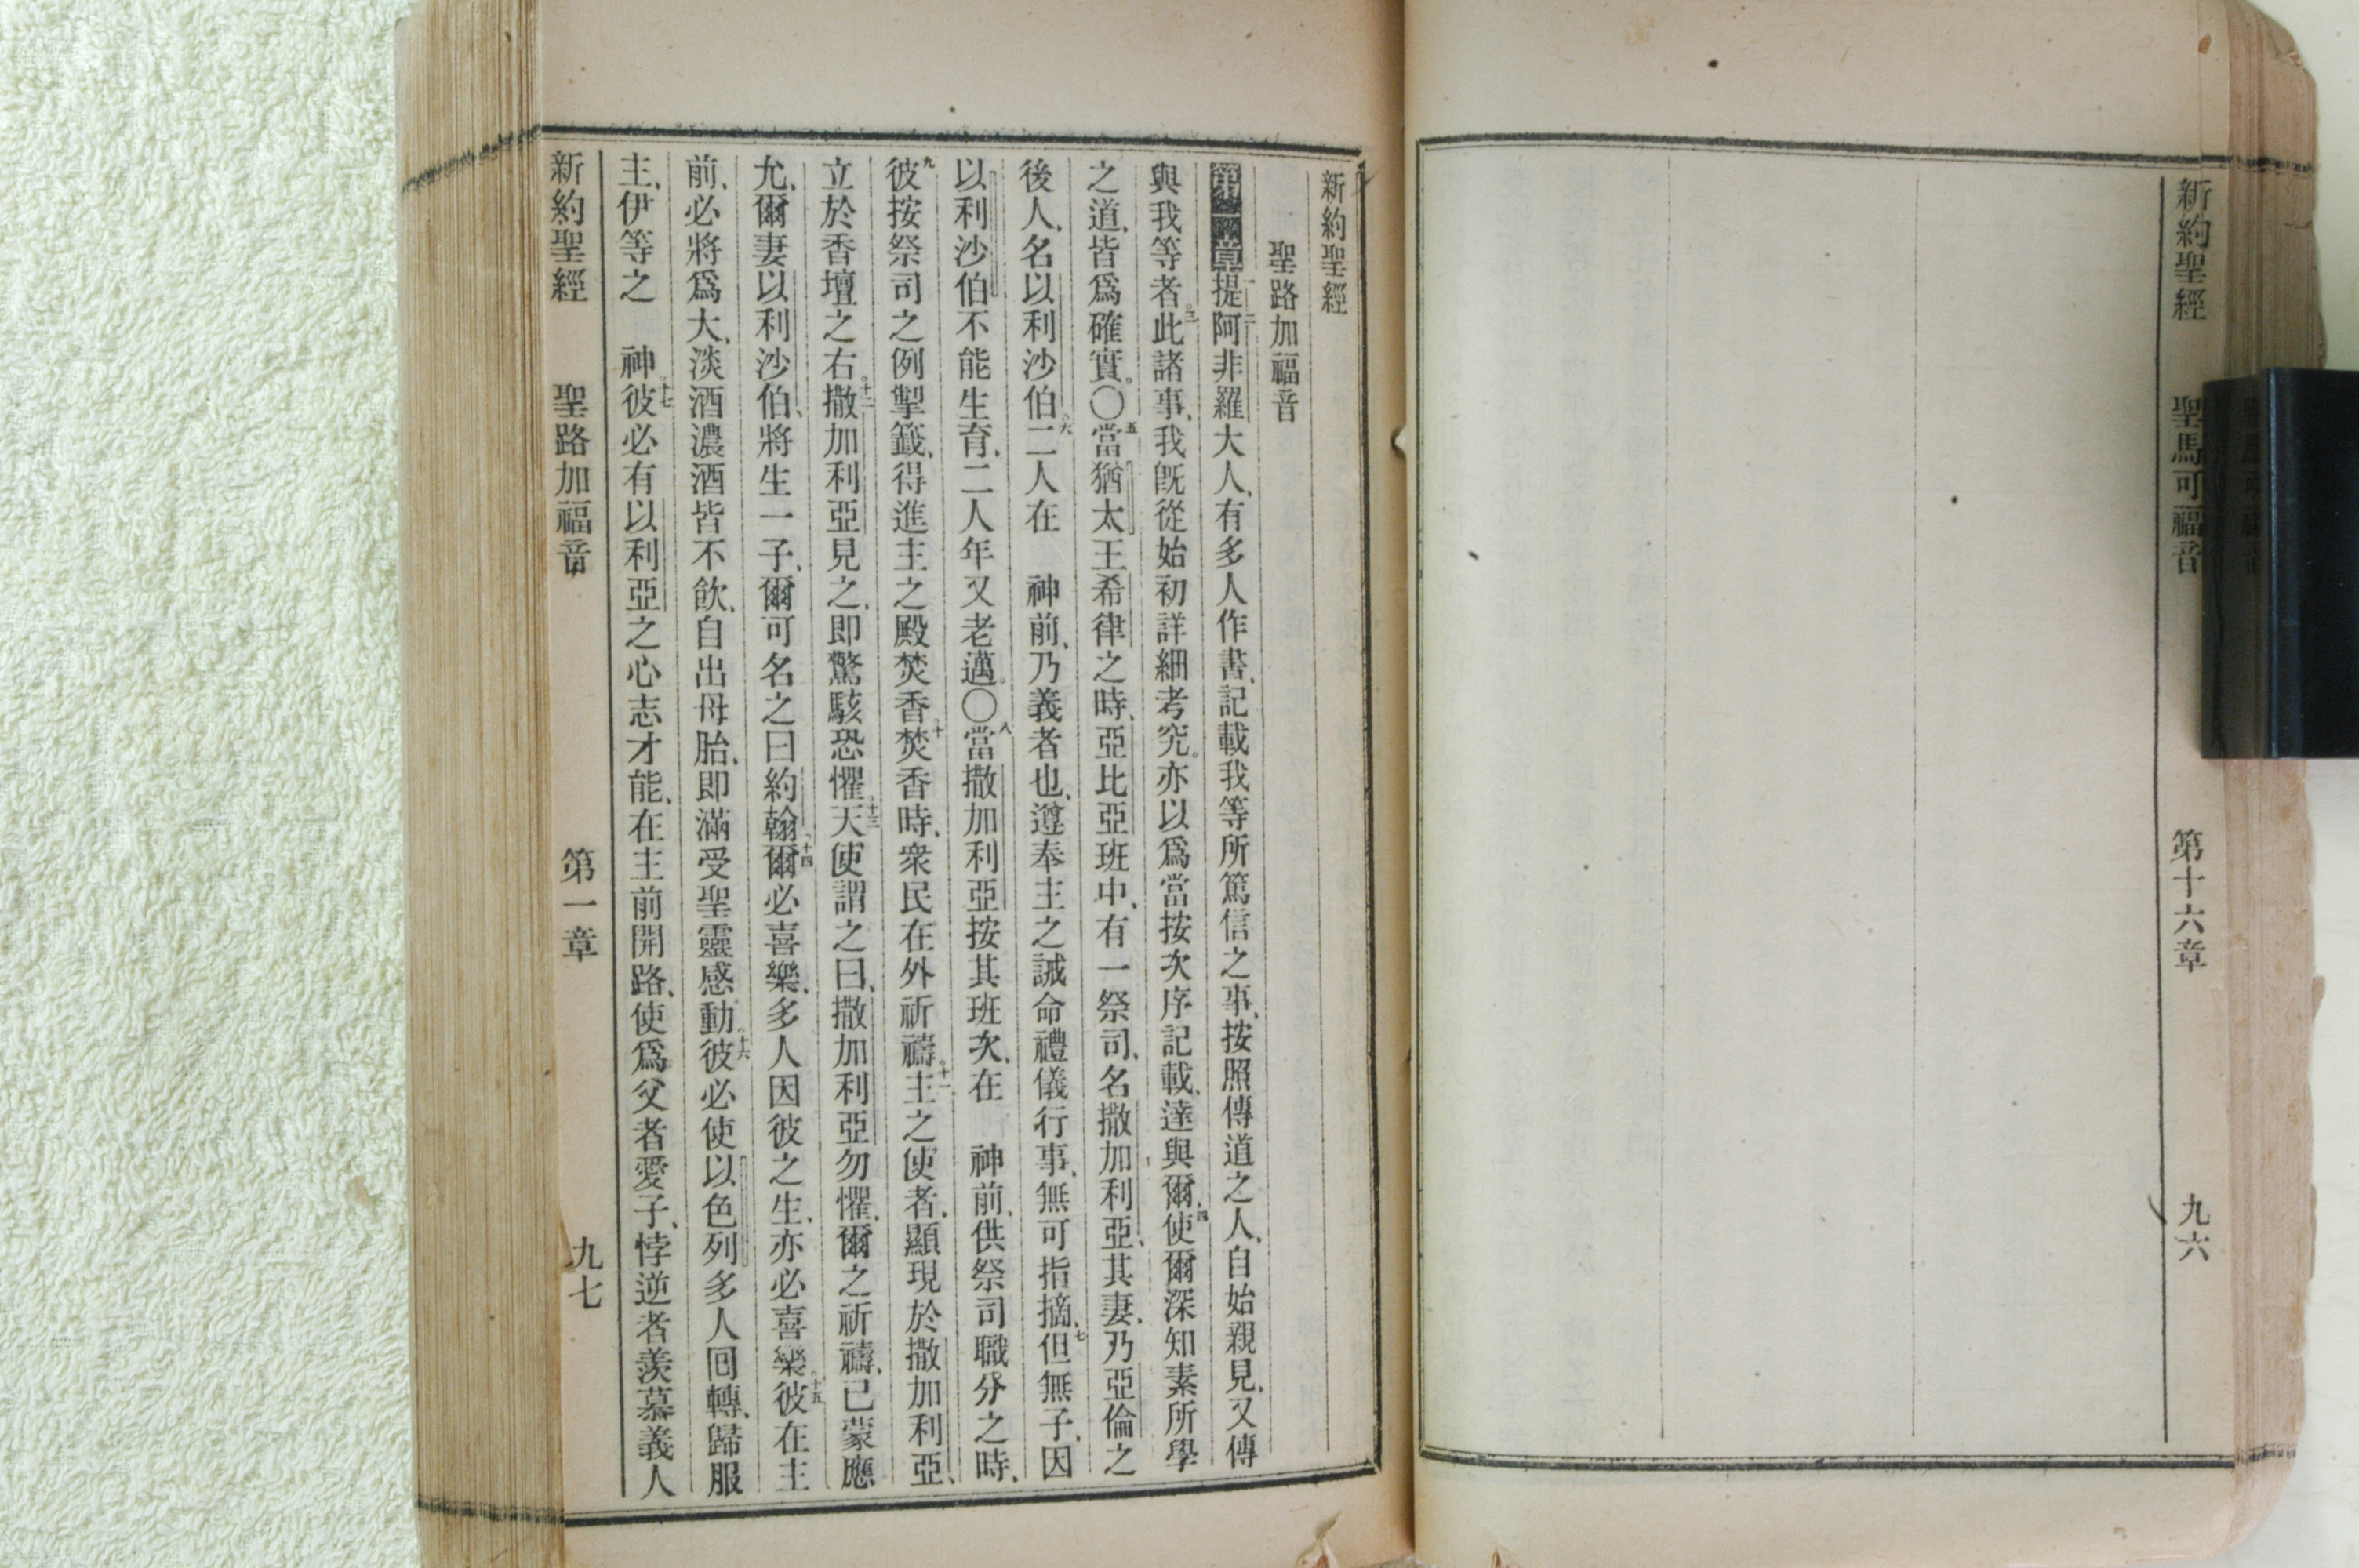 新約聖經　聖馬可福音　第十六章　九六
新約聖經
聖路加福音
第一章提阿非羅大人、有多人作書、記載我等所篤信之事、按照傳道之人、自始親見、又傳
與我等者。三此諸事、我旣從始初詳細考究。亦以爲當按次序記載、達與爾、四使爾深知素所學
之道、皆爲確實。〇五當猶太王希律之時、亞比亞班中、有一祭司、名撒加利亞、其妻、乃亞倫之
後人、名以利沙伯。六二人在　神前、乃義者也、遵奉主之誡命禮儀行事、無可指摘、七但無子、因
以利沙伯不能生育、二人年又老邁。〇八當撒加利亞按其班次、在　神前、供祭司職分之時、
九彼按祭司之例掣籤、得進主之殿焚香。十焚香時、衆民在外祈禱。十一主之使者、顯現於撒加利亞、
立於香壇之右。十二撒加利亞見之、即驚駭恐懼。十三天使謂之曰、撒加利亞勿懼、爾之祈禱、已蒙應
允、爾妻以利沙伯、將生一子、爾可名之曰約翰。十四爾必喜樂、多人因彼之生、亦必喜樂。十五彼在主
前、必將爲大、淡酒濃酒皆不飲、自出母胎、即滿受聖靈感動。十六彼必使以色列多人回轉、歸服
主、伊等之　神。十七彼必有以利亞之心志才能、在主前開路、使爲父者愛子、悖逆者羨慕義人
新約聖經　聖路加福音　第一章　九七